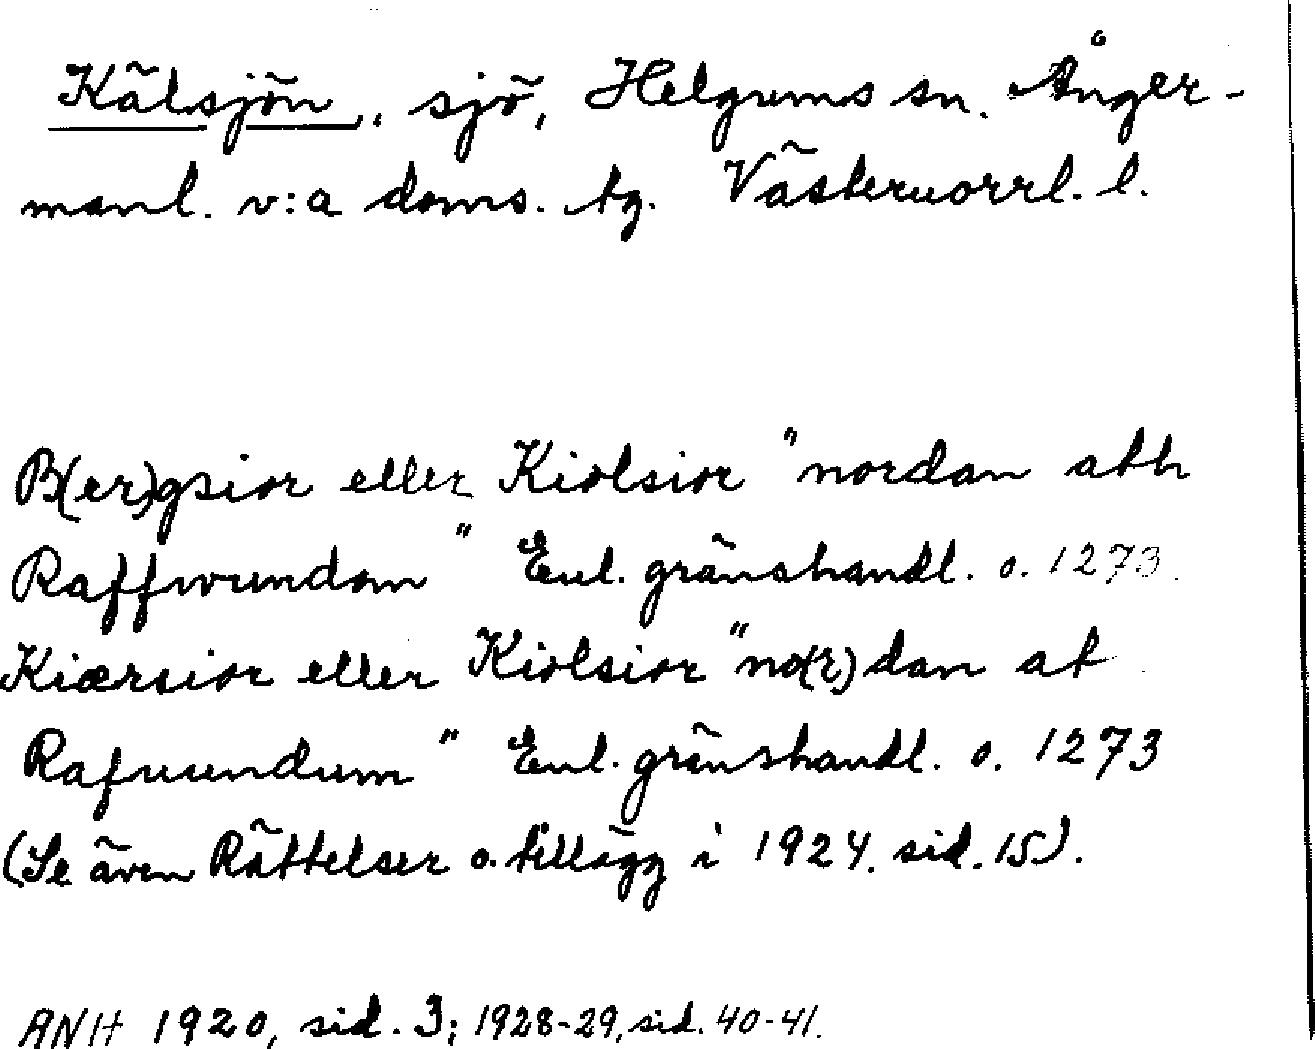 Kälsjön, sjö, Helgums sn. Ånger-
manl. v:a doms. tg. Västernorrl. l.
B(er)gsior eller Kiolsior "nordan ath
Raffwundom" Enl. gränshandl. o. 1273.
Kiærsior eller Kiolsior "no(r)dan at
Rafnundum" Enl. gränshandl. o. 1273
(Se även Rättelser o. tillägg i 1924. sid. 15).
ANH 1920, sid. 3; 1928-29, sid. 40-41.